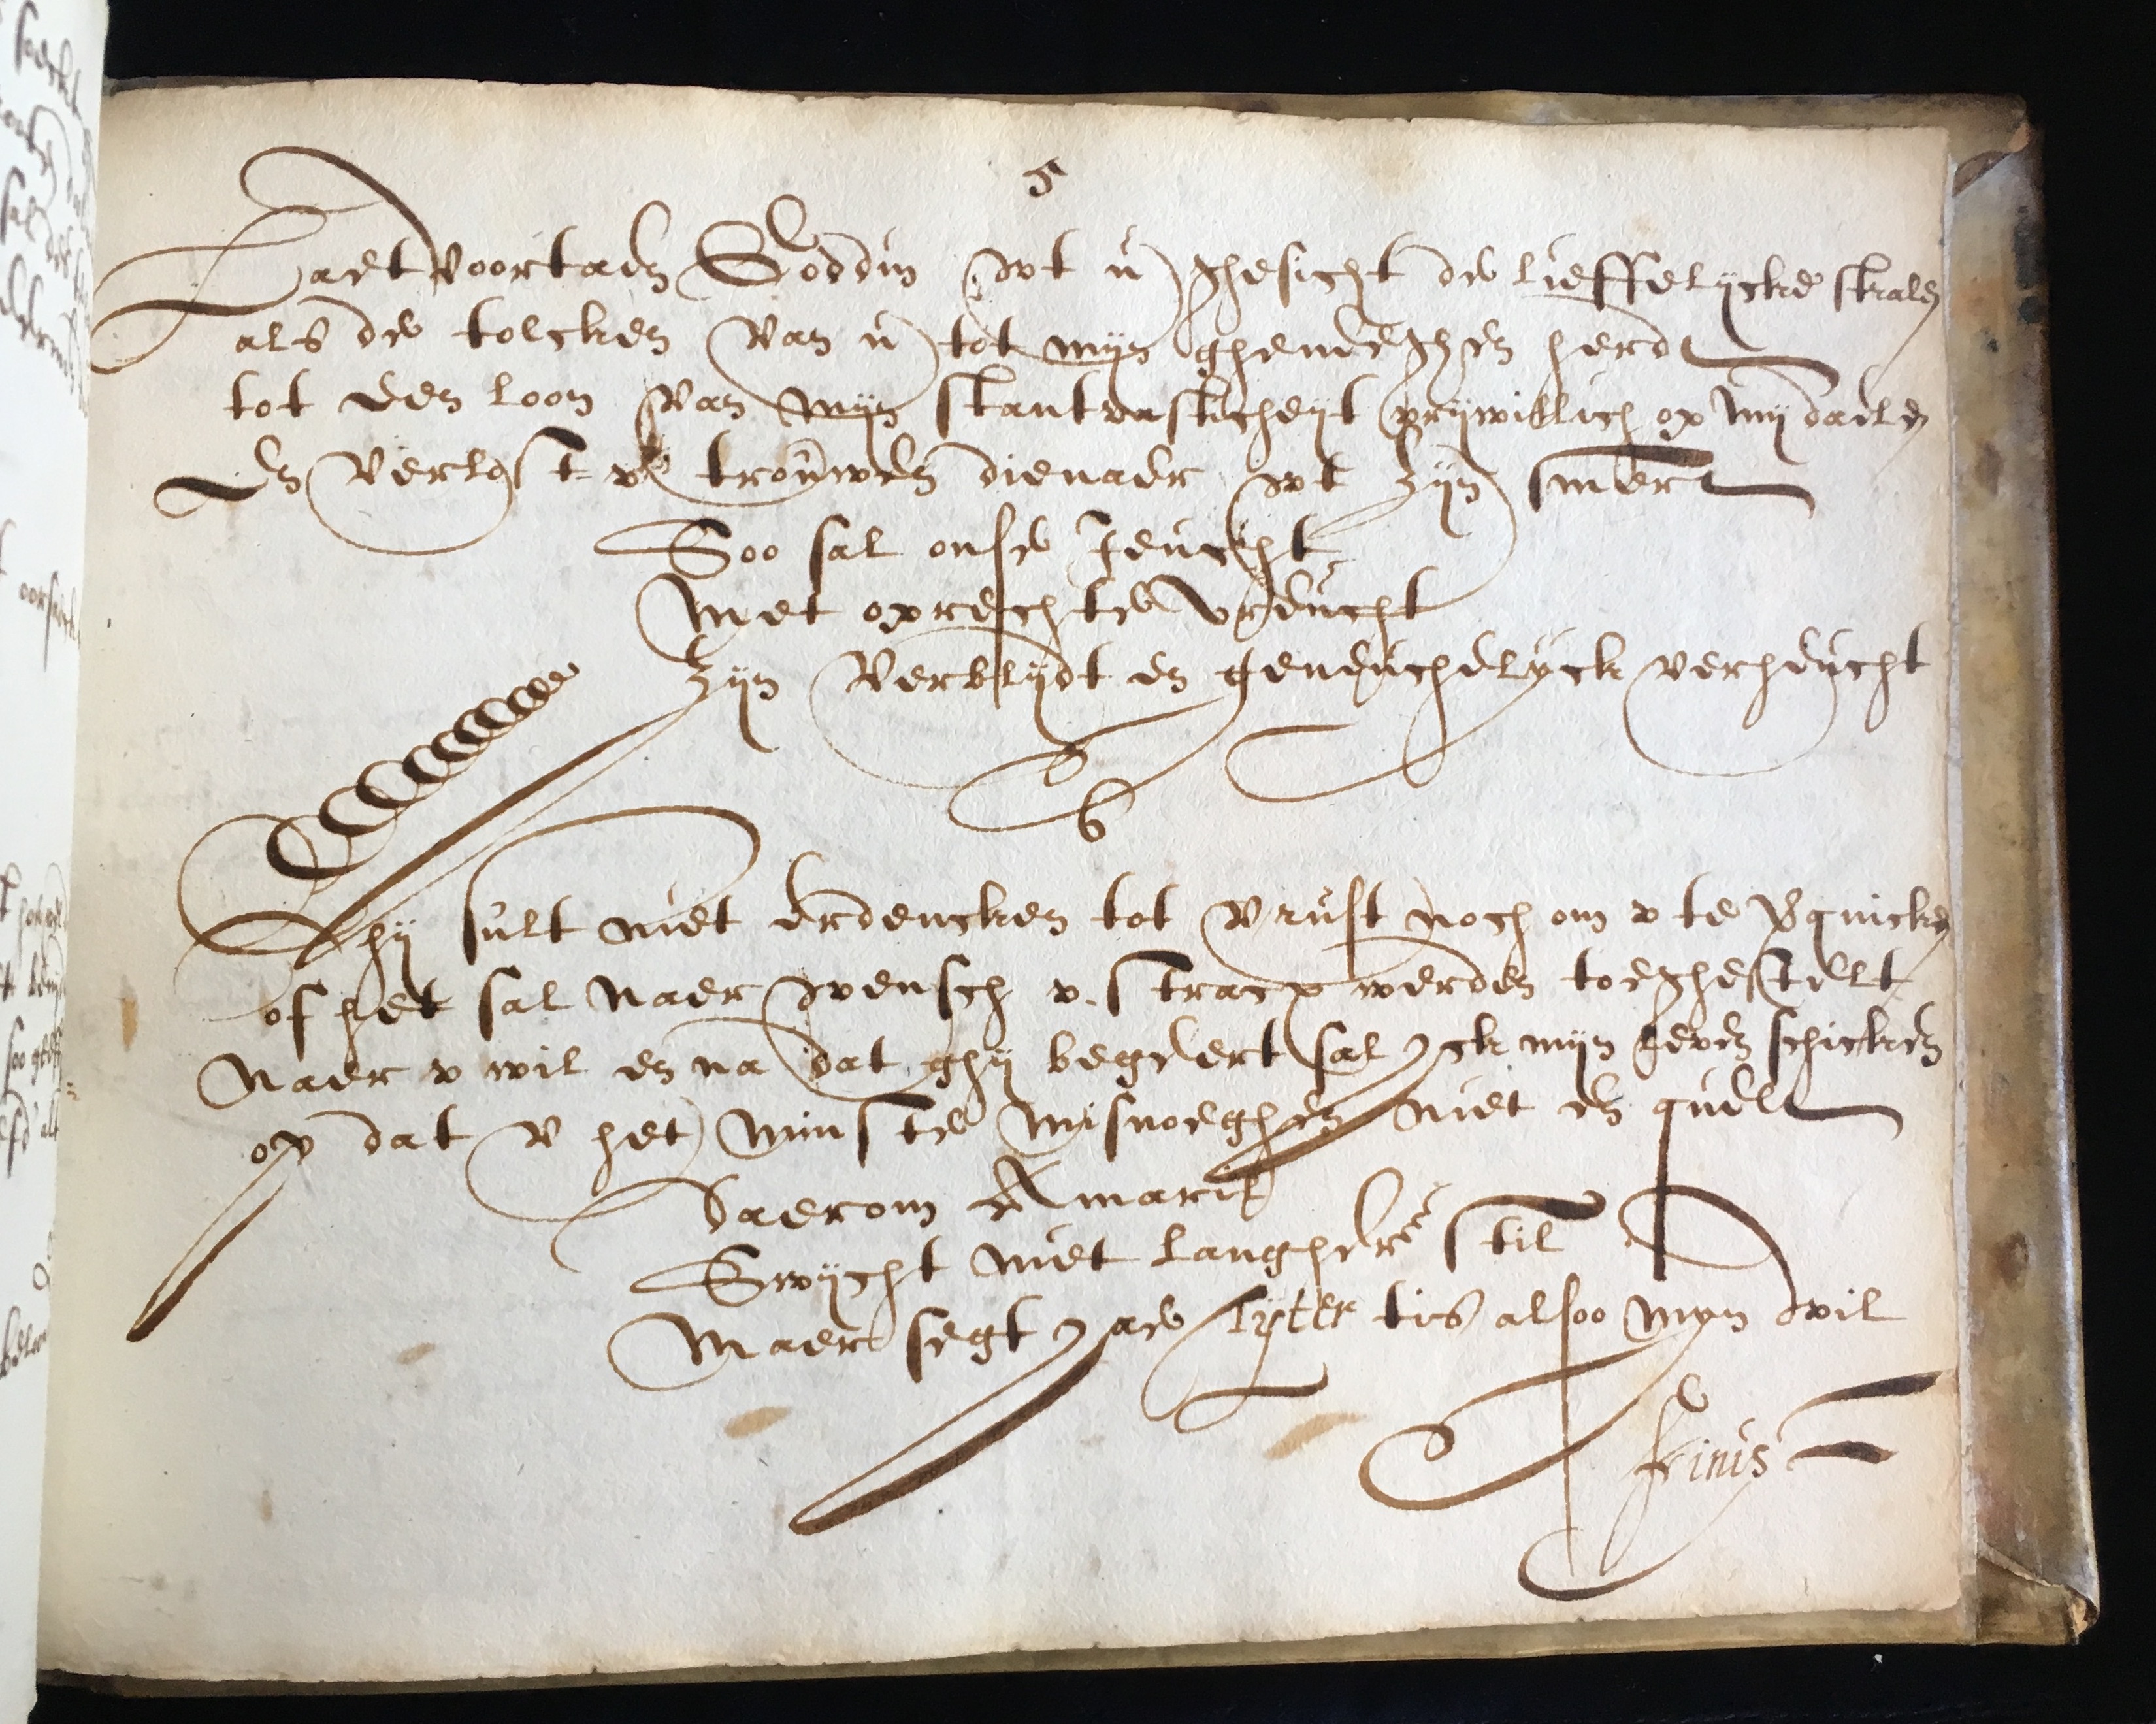 5
Laet voortaen Goddin wt u ghesicht de lieffelycke stralen
als de tolcken van u tot myn gheneghen herdt
tot den loon van myn stantvasticheyt vrywillich op my daelen
En verlost u trouwen dienaer wt zyn smert
Soo sal onse Jeucht
Met oprechte vreucht
Zyn verblydt en geneuchelyck verheucht
6
Ghy sult niet erdencken tot v rust noch om v te verquicken
of het sal naer wensch v. stracx werden toeghestelt
Naer v wil en na dat ghy begeert sal yck myn leven schicken
op dat v het minste misnoeghen niet en quelt
Daerom Amaril
Swycht niet langher stil
Maer segt yae Tyter tis alsoo myn wil
Finis